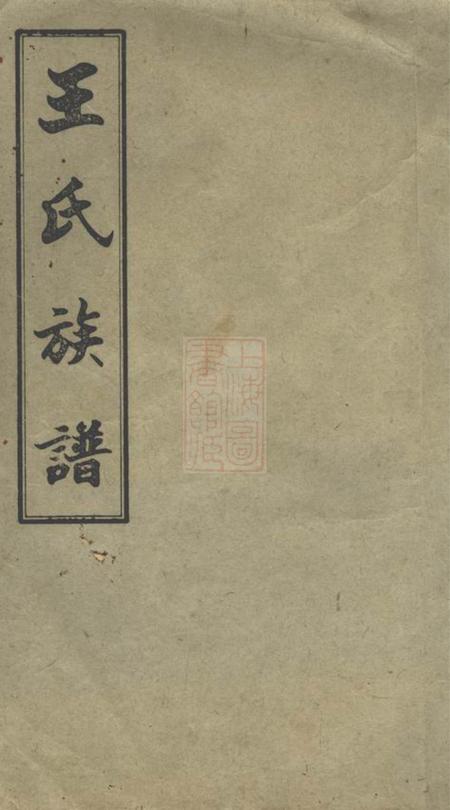 王氏族譜
上海圖
書館臧